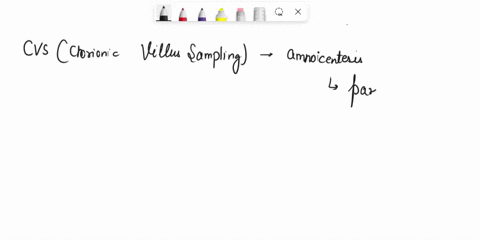 CVS (Chorionic Villus Sampling) → amnoicentesis
↳ par